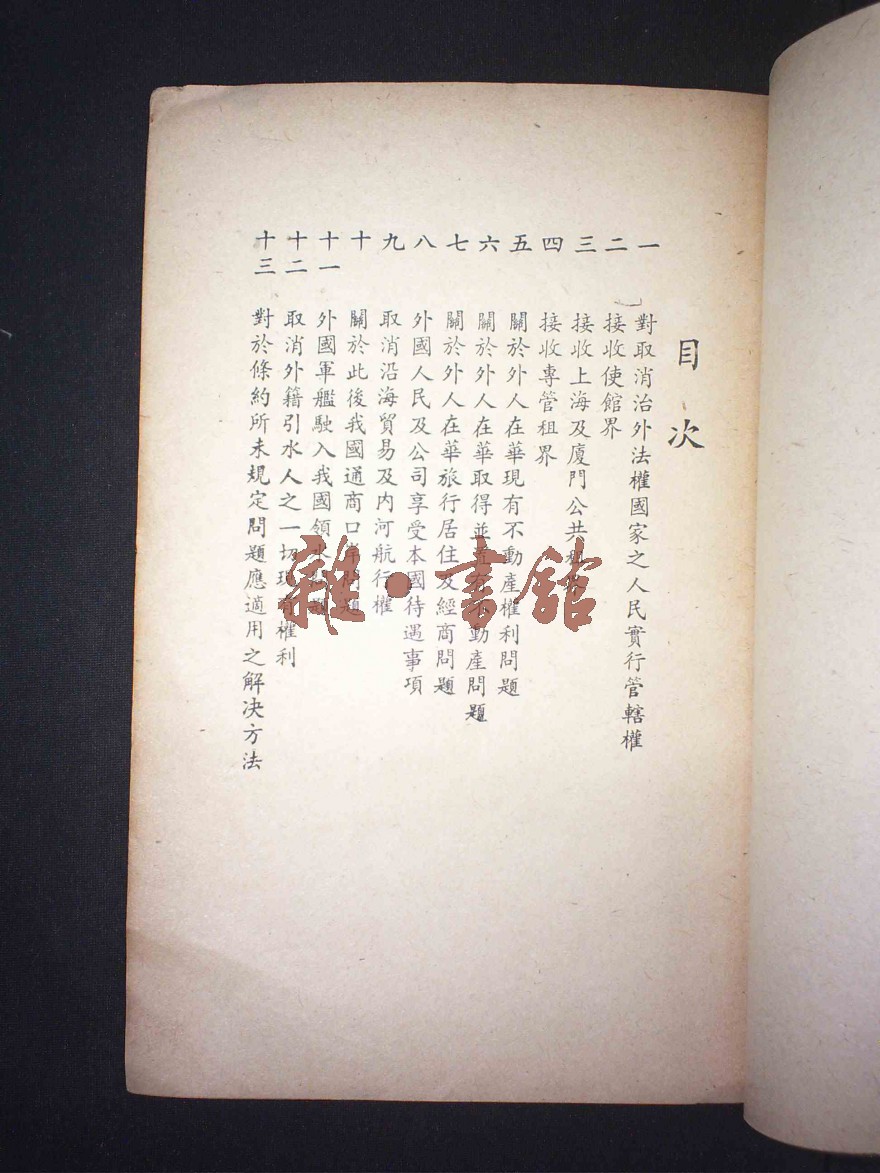 目次
一 對取消治外法權國家之人民實行管轄權
二 接收使館界
三 接收上海及廈門公共租界
四 接收專管租界
五 關於外人在華現有不動產權利問題
六 關於外人在華取得並置有不動產問題
七 關於外人在華旅行居住及經商問題
八 外國人民及公司享受本國待遇事項
九 取消沿海貿易及內河航行權
十 關於此後我國通商口岸問題
十一 外國軍艦駛入我國領水問題
十二 取消外籍引水人之一切現有權利
十三 對於條約所未規定問題應適用之解決方法
雜·書館